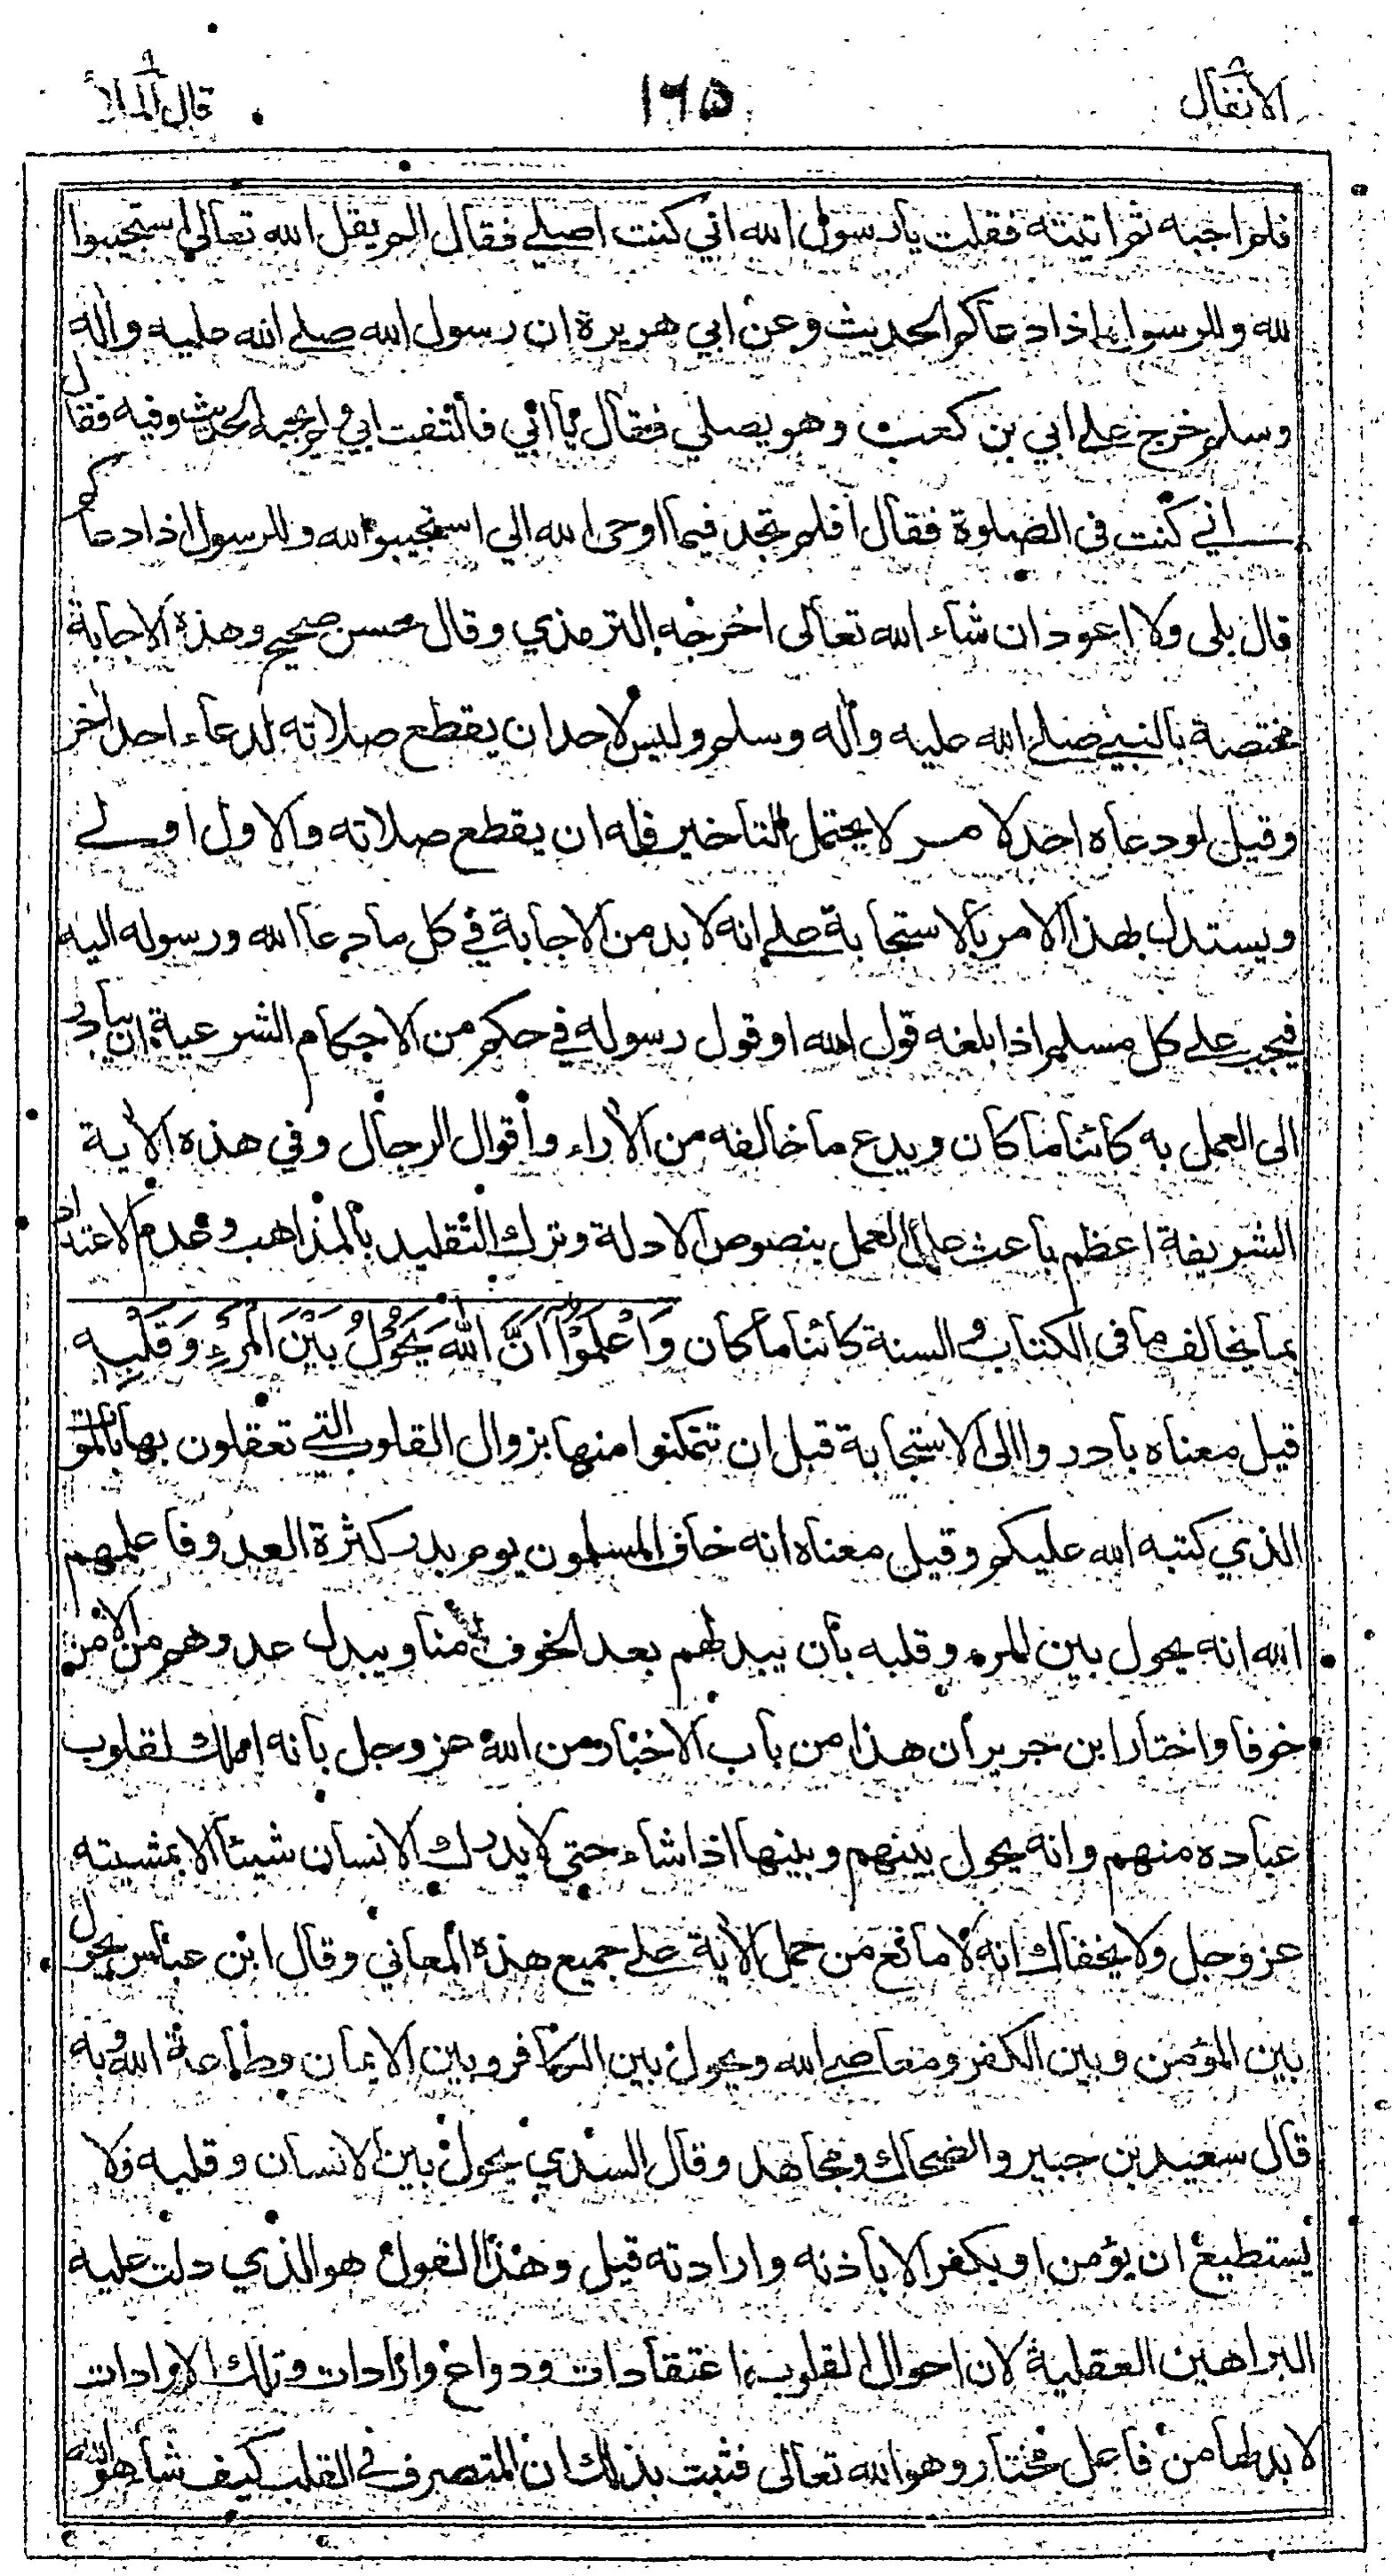 الانفال ١٦٥ قال الملأ ٩
فلم اجبه ثم اتيته فقلت يا رسول الله اني كنت اصلي فقال الم يقل الله تعالى استجيبوا
لله وللرسول اذا دعاكم الحديث وعن ابي هريرة ان رسول الله صلى الله عليه واٰله
وسلم خرج على ابي بن كعب وهو يصلي فقال يا ابي فالتفت ابي ولم يجبه الحديث وفيه فقال
اني كنت في الصلوة فقال افلم تجد فيما اوحى الله الي استجيبوا لله وللرسول اذا دعاكم
قال بلى ولا اعود ان شاء الله تعالى اخرجه الترمذي وقال حسن صحيح وهذه الاجابة
مختصة بالنبي صلى الله عليه واٰله وسلم وليس لاحد ان يقطع صلاته لدعاء احد اٰخر
وقيل لو دعاه احد لامر لا يحتمل التاخير فله ان يقطع صلاته والاول اولى
ويستدل بهذا الامر بالاستجابة على انه لا بد من الاجابة في كل ما دعا الله ورسوله اليه
فيجب على كل مسلم اذا بلغه قول الله او قول رسوله في حكم من الاحكام الشرعية ان يبادر
الى العمل به كائنا ما كان ويدع ما خالفه من الاٰراء وأقوال الرجال وفي هذه الاٰية
الشريفة اعظم باعث على العمل بنصوص الادلة وترك التقليد بالمذاهب وعدم الاعتداد
بما يخالف ما في الكتاب والسنة كائنا ما كان وَاعْلَمُوْا اَنَّ اللهَ يَحُوْلُ بَيْنَ الْمَرْءِ وَقَلْبِهٖ
قيل معناه بادروا الى الاستجابة قبل ان تتمكنوا منها بزوال القلوب التي تعقلون بها بالموت
الذي كتبه الله عليكم وقيل معناه انه خاف المسلمون يوم بدر كثرة العدو فاعلمهم
الله انه يحول بين المرء وقلبه بأن يبدلهم بعد الخوف امنا ويبدل عدوهم من الامن
خوفا واختار ابن جرير ان هذا من باب الاخبار من الله عز وجل بأنه املك لقلوب
عباده منهم وانه يحول بينهم وبينها اذا شاء حتى لا يدرك الانسان شيئا الا بمشيته
عز وجل ولا يخفاك انه لا مانع من حمل الاٰية على جميع هذه المعاني وقال ابن عباس يحول
بين المؤمن وبين الكفر ومعاصي الله ويحول بين الكافر وبين الايمان وطاعة الله وبه
قال سعيد بن جبير والضحاك ومجاهد وقال السدي يحول بين الانسان وقلبه فلا
يستطيع ان يؤمن او يكفر الا باذنه وارادته قيل وهذا القول هو الذي دلت عليه
البراهين العقلية لان احوال القلوب اعتقادات ودواع وارادات وتلك الارادات
لا بد لها من فاعل مختار وهو الله تعالى فثبت بذلك ان المتصرف في القلب كيف شاء هو الله